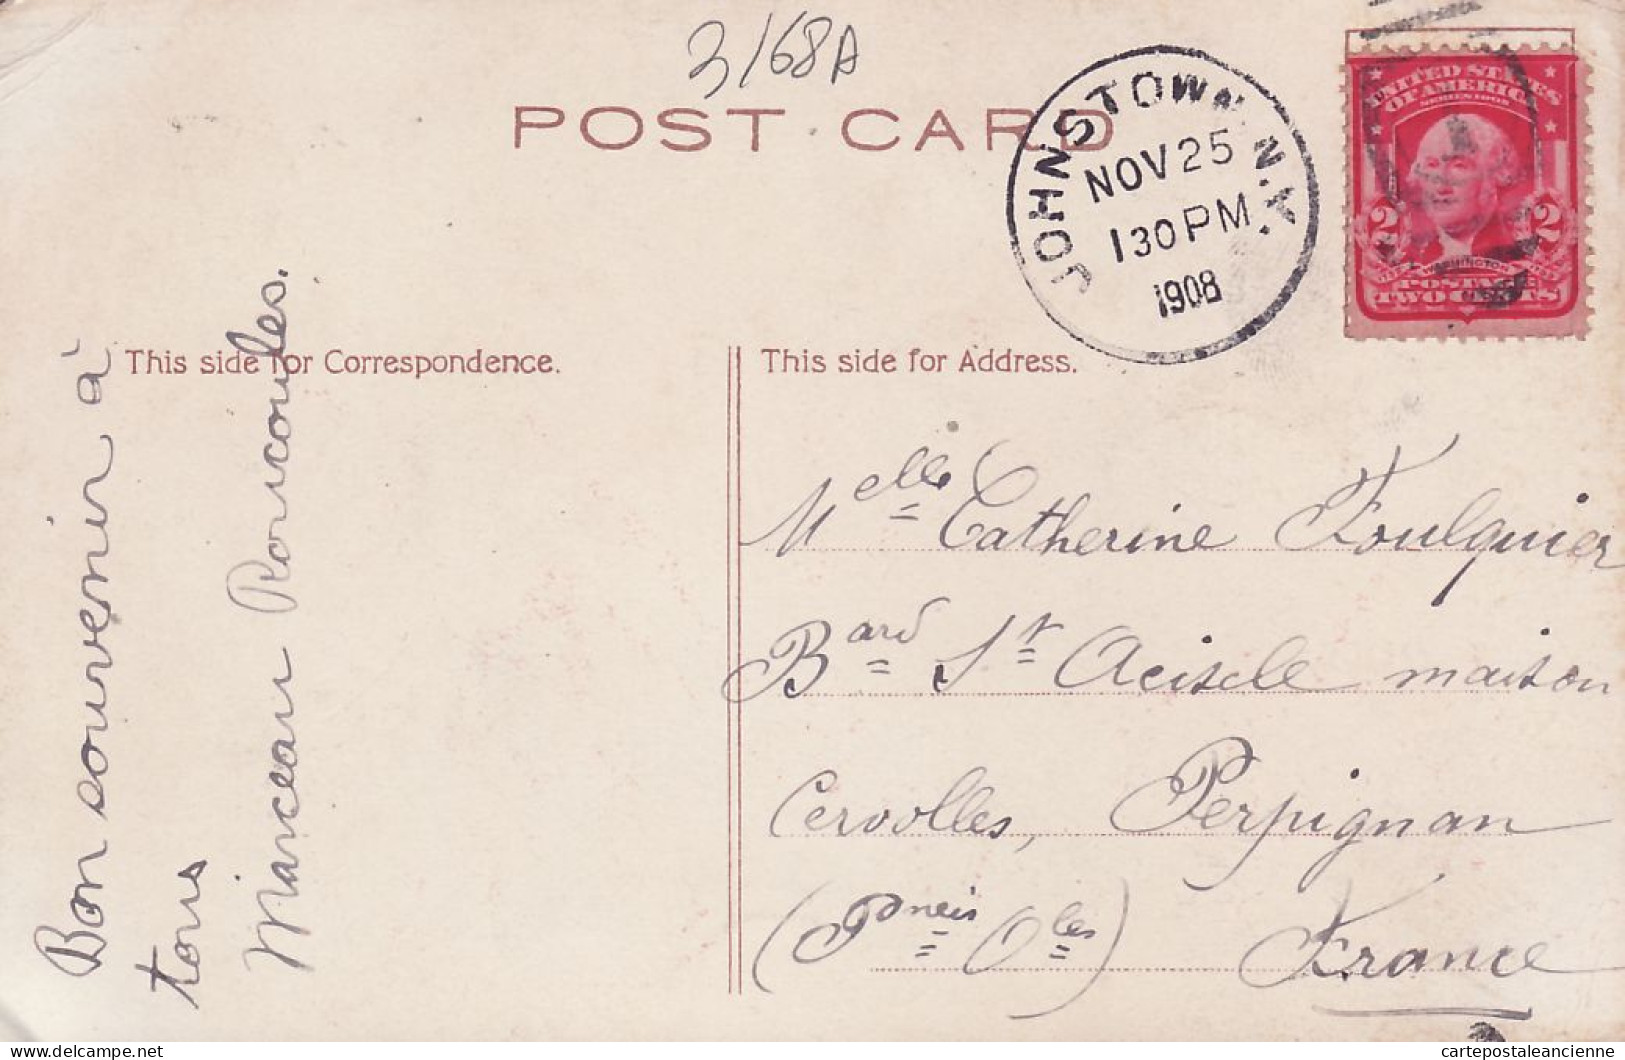 3168A
POST CARD
JOHNSTOWN, N.Y.
NOV 25
1 30 PM
1908
UNITED STATES
OF AMERICA
SERIES 1902
2 2
WASHINGTON
POSTAGE
TWO CENTS
This side for Correspondence.
This side for Address.
Bon souvenir à
tous
Marceau
Melle Catherine Foulquier
Bard St Aciscle maison
Cervolles, Perpignan
(Pneis Oles) France
cartepostaleancienne
www.delcampe.net